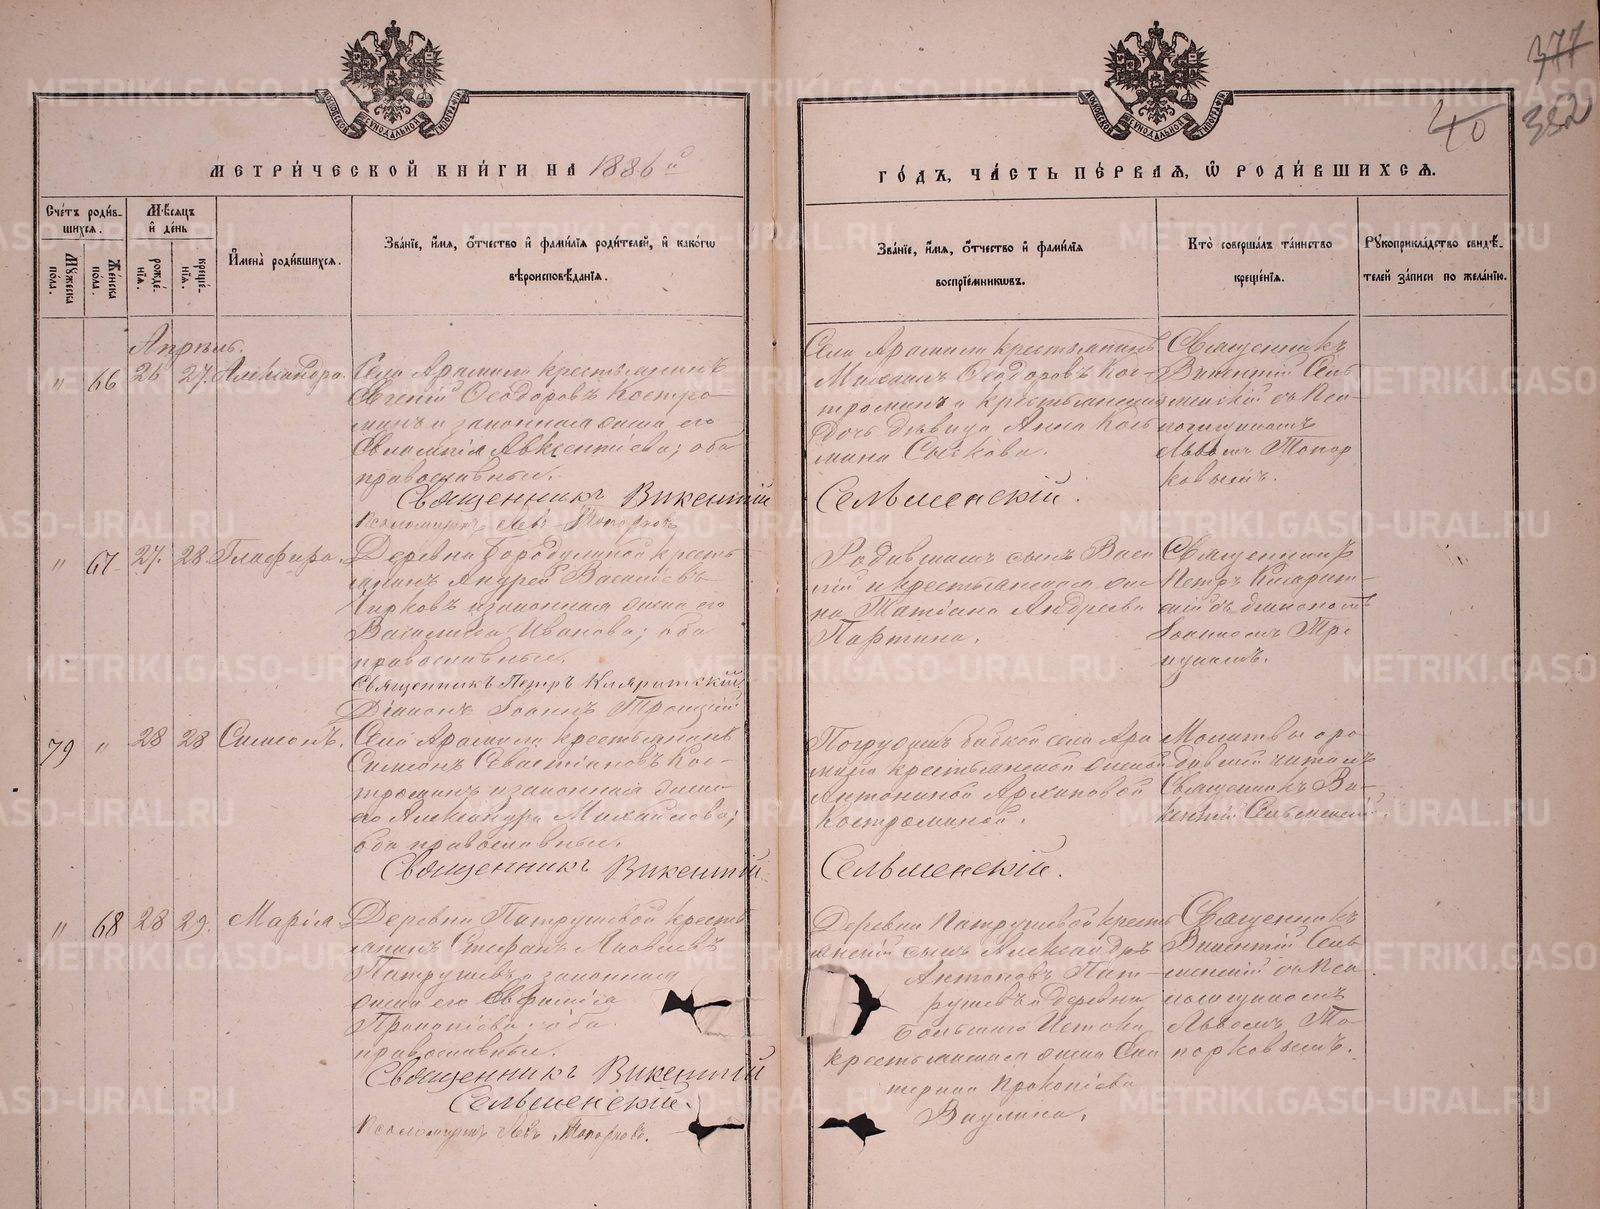 377
40
382
МЕТРИ́ЧЕСКОЙ КНИ́ГИ НА 1886й
ГО́ДЪ, ЧА́СТЬ ПЕ́РВАЯ, Ѡ РОДИ́ВШИХСЯ.
Счетъ роди́в-
шихся.
Мѣсяцъ
и день
Имена̀ роди́вшихся.
Зва́нїе, и́мя, о́тчество и фами́лїя роди́телей, и како́гѡ
вѣроисповѣ́данїя.
Зва́нїе, и́мя, о́тчество и фами́лїя
воспрїе́мникѡвъ.
Кто̀ соверша́лъ та́инство
креще́нїя.
Рꙋкоприкла́дство свидѣ́-
телей за́писи по жела́нїю.
Мꙋжеска
по́ла.
Же́нска
по́ла.
рожде́-
нїя.
креще́-
нїя.
Апрѣль.
" 66 26 27. Александра.
Села Арамили крестьянинъ
Евгеній Ѳеодоровъ Костро-
минъ и законная жена его
Евлампія Авксентіева; оба
православные.
Священникъ Викентій
Псаломщикъ Левъ Топорковъ
Села Арамили крестьянинъ
Михаилъ Ѳеодоровъ Кос-
троминъ и крестьянская
дочь дѣвица Анна Козь
мина Сычкова.
Сельменскій.
Священникъ
Викентій Сель
менскій съ Пса-
ломщикомъ
Львомъ Топор
ковымъ.
" 67 27. 28 Глафира.
Деревни Бородулиной кресть
янинъ Андрей Васильевъ
Чирковъ и законная жена его
Василиса Иванова; оба
православные.
Священникъ Петръ Кляритскій
Діаконъ Іоаннъ Троицкій
Родившаго сынъ Васи
лій и крестьянская же
на Татіана Андреева
Партина.
Священникъ
Петръ Кларит-
скій съ діакономъ
Іоанномъ Тро
ицкимъ.
79 " 28 28 Симеонъ.
Села Арамили крестьянинъ
Симеонъ Севастіановъ Кос-
троминъ и законная жена
его Александра Михайлова;
оба православные.
Священникъ Викентій
Погружен бабкой села Ара
мили крестьянской женой
Антониной Архиповой
Костроминой.
Сельменскій.
Молитвы ро
дившей читалъ
Священникъ Ви-
кентій Сельменскій.
" 68 28 29. Марія
Деревни Патрушевой кресть
янинъ Стефанъ Яковлевъ
Патрушевъ и законная
жена его Евфимія
Прокопіева; оба
православные.
Священникъ Викентій
Сельменскій.
Псаломщикъ Левъ Топорковъ.
Деревни Патрушевой кресть
янскій сынъ Александръ
Антоновъ Пат-
рушевъ и деревни
Большаго Истока
крестьянская жена Ека
терина Прокопіева
Ваулина.
Священникъ
Викентій Сель-
менскій съ Пса
ломщикомъ
Львомъ То-
порковымъ.
METRIKI.GASO-URAL.RU